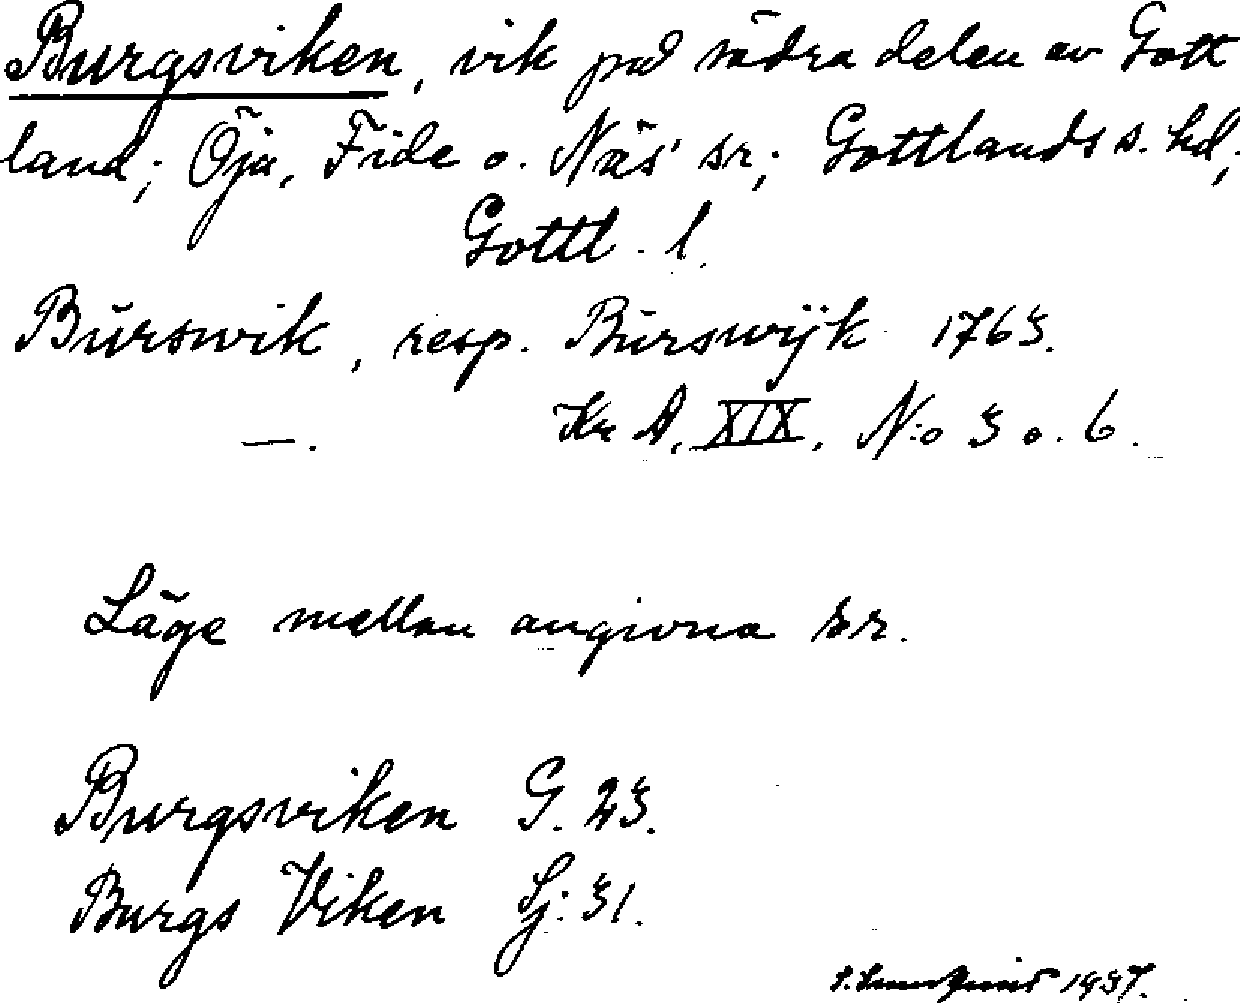 Burgsviken, vik på södra delen av Gott
land; Öja, Fide o. Näs' sr; Gottlands s. hd,
Gottl. l.
Būrswik, resp. Bürswÿk 1763.
—. Kr A, XIX, N:o 3 o. 6.
Läge mellan angivna sr.
Burgsviken G. 23.
Burgs Viken Sj: 31.
1937.